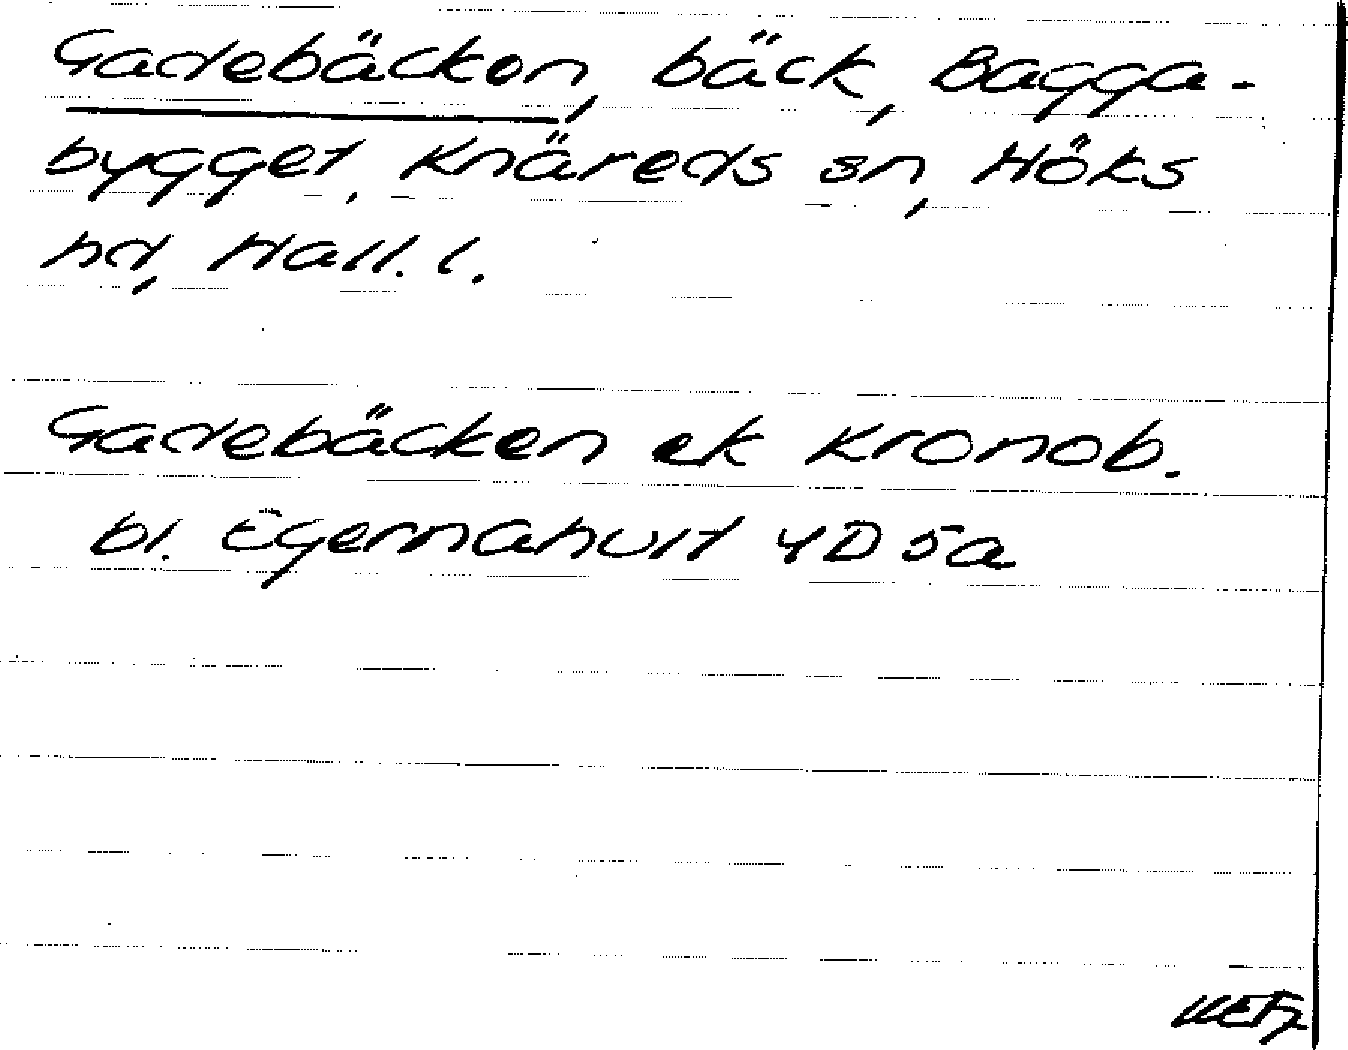 Gadebäcken, bäck, Bagga-
bygget, Knäreds sn, Höks
hd, Hall. l.
Gadebäcken ek Kronob.
bl. Egernahult 4D 5a